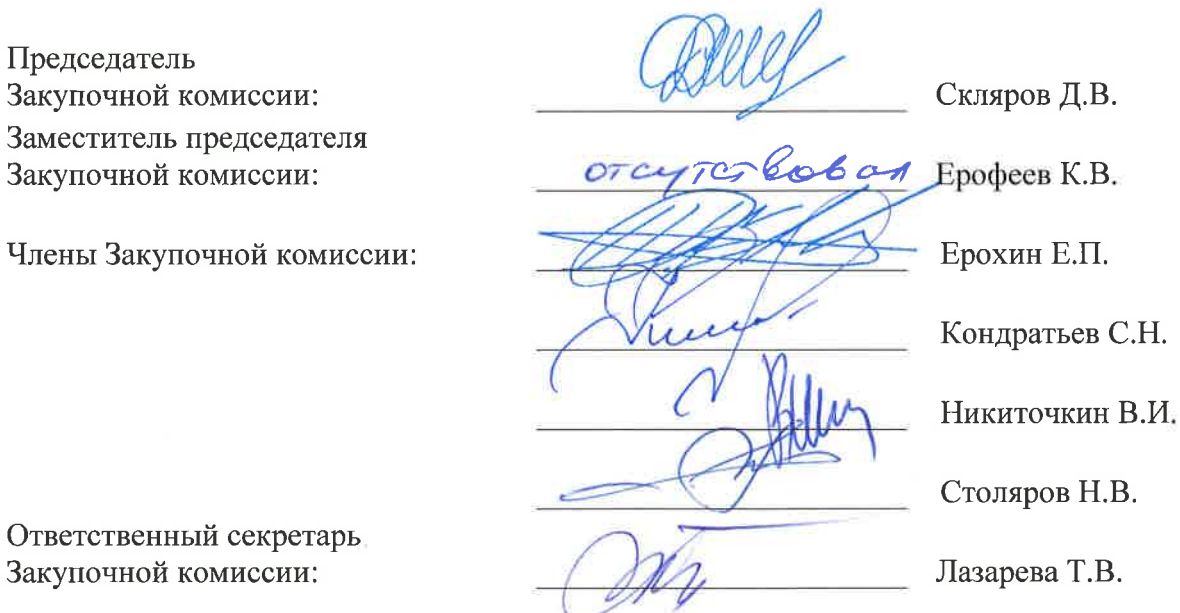 Председатель
Закупочной комиссии: Скляров Д.В.
Заместитель председателя
Закупочной комиссии: отсутствовал Ерофеев К.В.
Члены Закупочной комиссии: Ерохин Е.П.
Кондратьев С.Н.
Никиточкин В.И.
Столяров Н.В.
Ответственный секретарь
Закупочной комиссии: Лазарева Т.В.